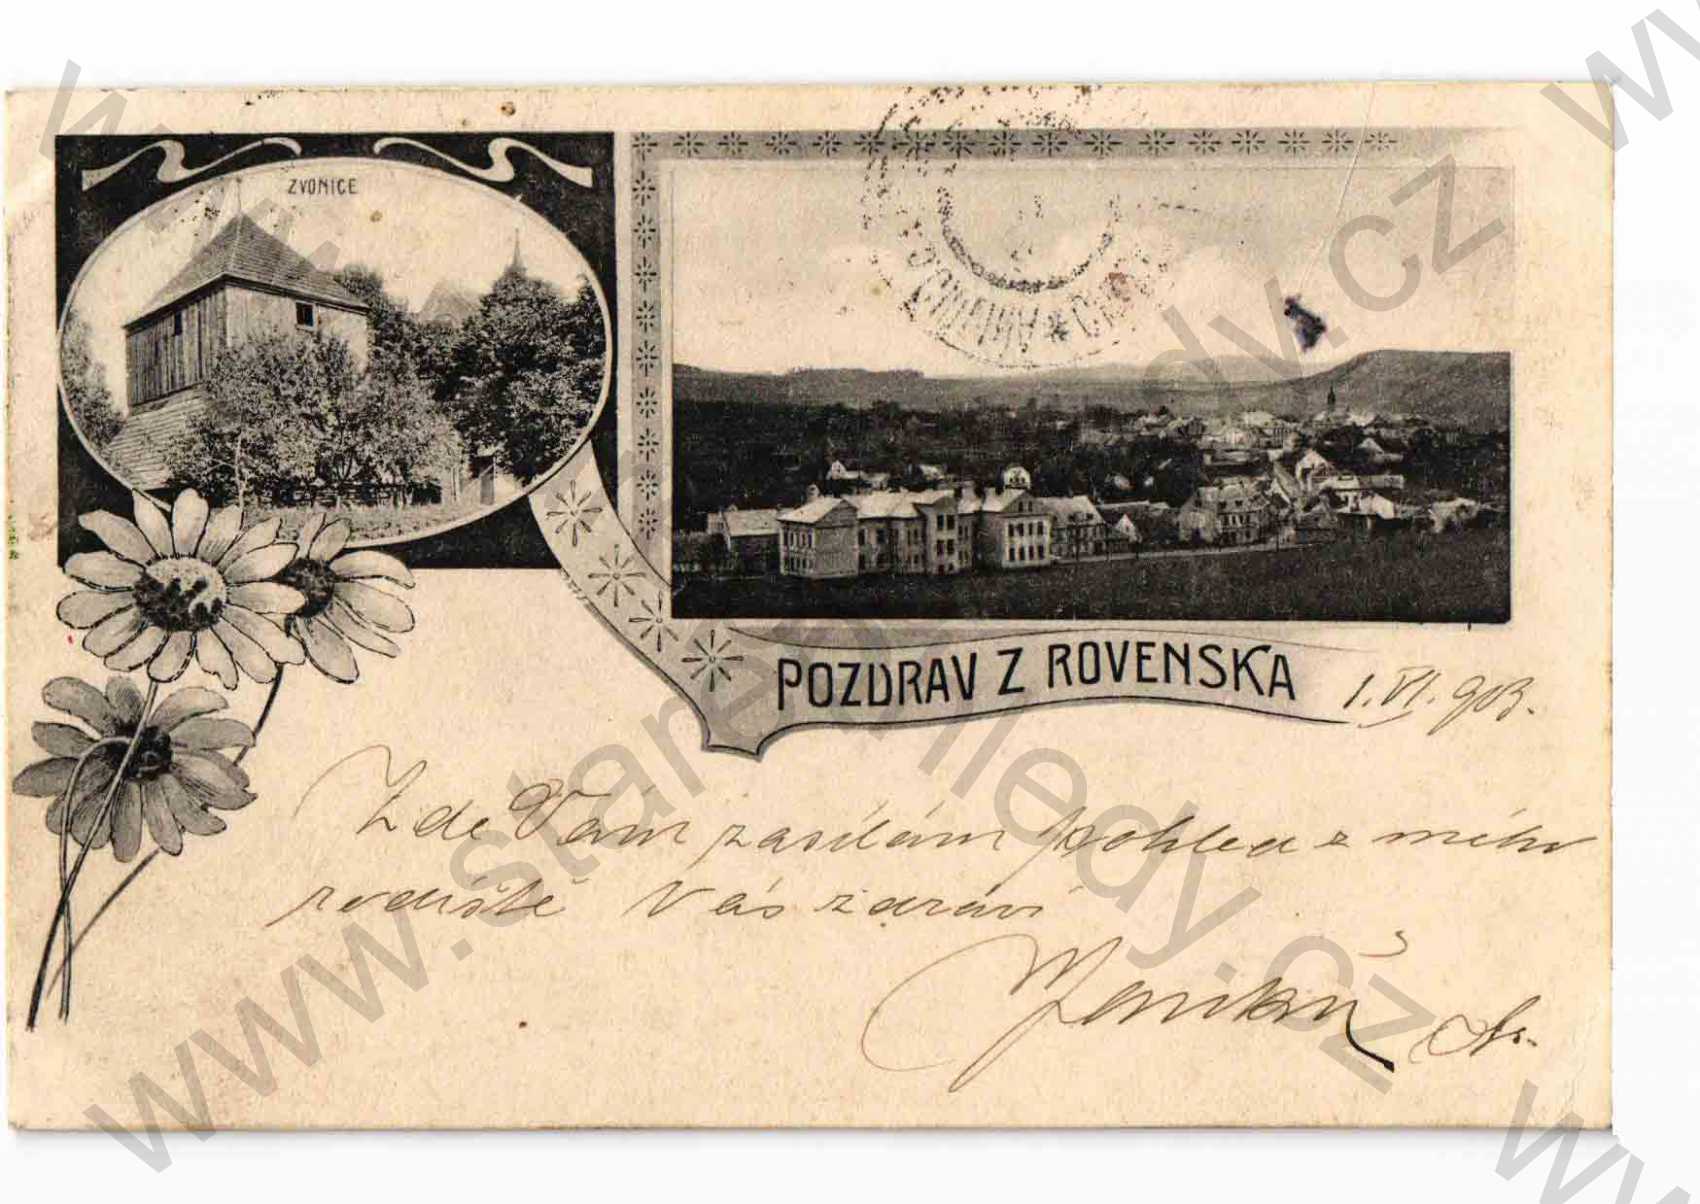 ZVONICE
POZDRAV Z ROVENSKA
1. VI. 903.
Zde Vám zasílám pohled z mého
rodiště Vás zdraví
www.starepohledy.cz